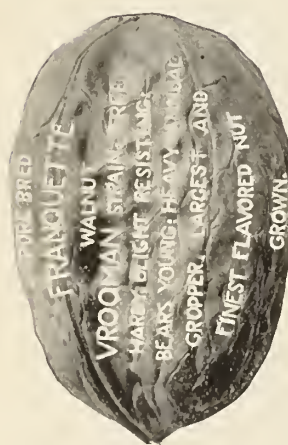 PURE BRED
FRANQUETTE
WALNUT
VROOMAN STRAIN.
HARDY: BLIGHT RESISTING:
BEARS YOUNG: HEAVY
CROPPER. LARGEST AND
FINEST FLAVORED NUT
GROWN.